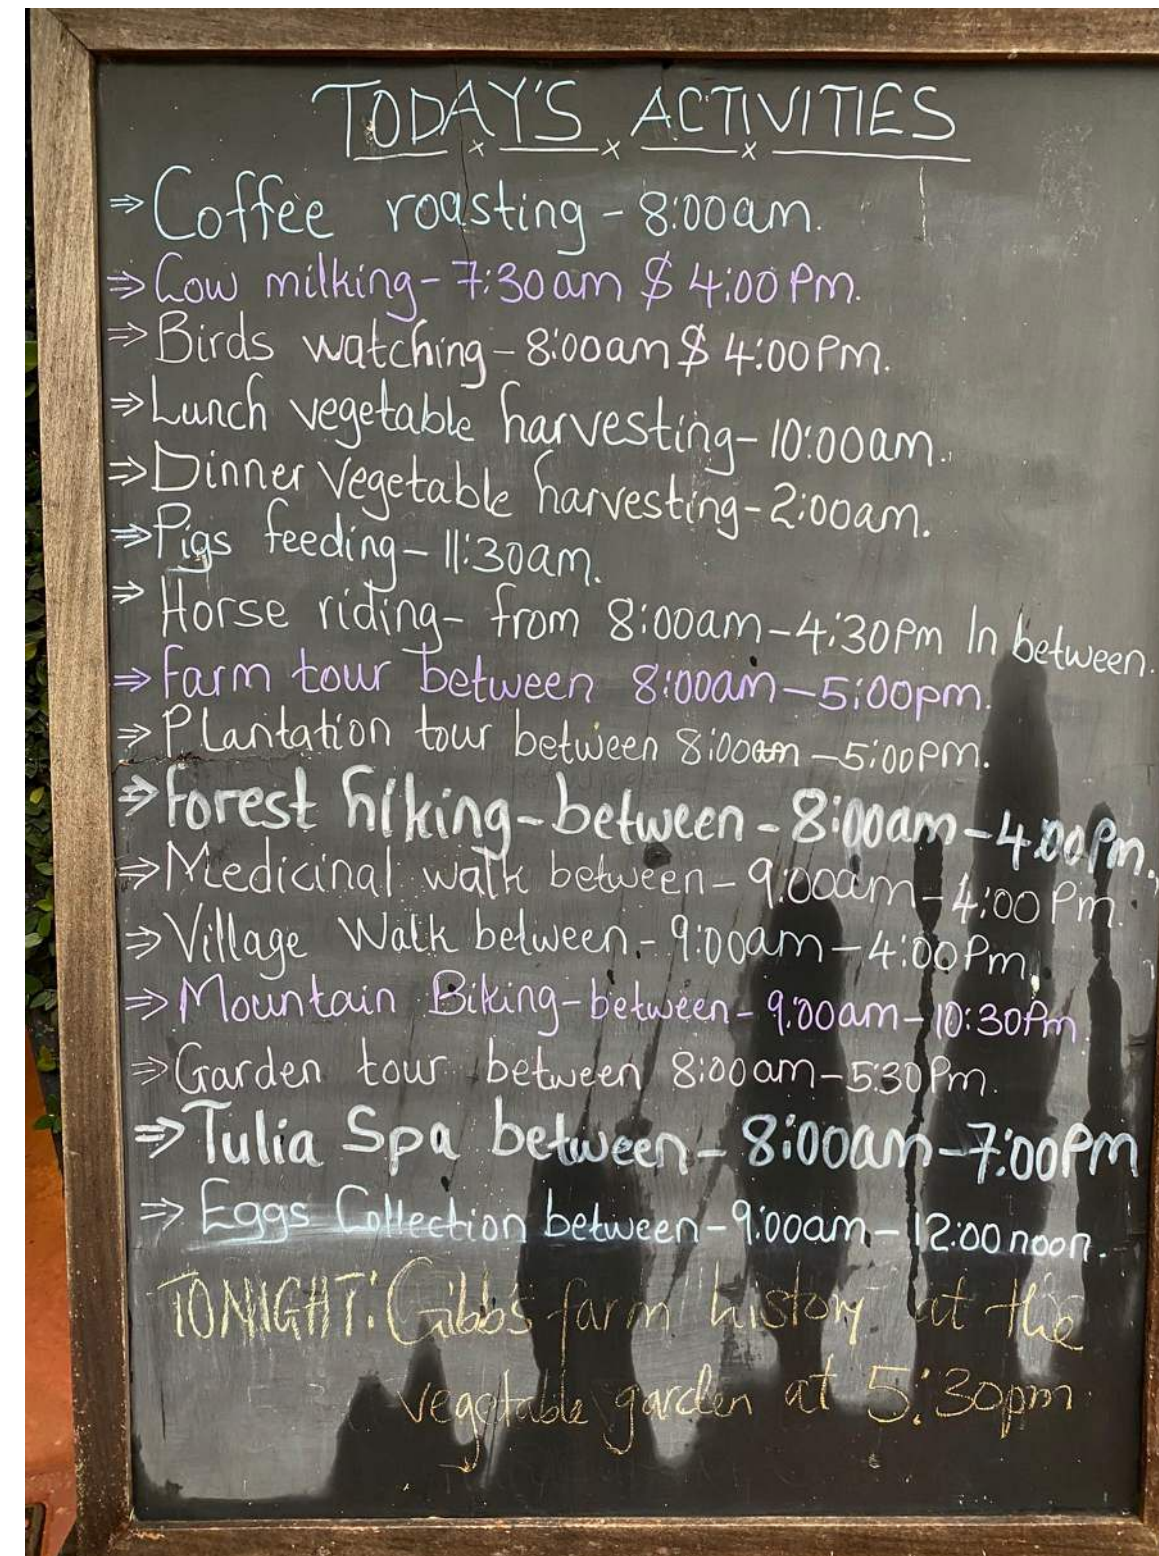 TODAY'S ACTIVITIES
⇒ Coffee roasting - 8:00am.
⇒ Cow milking - 7:30am $ 4:00 Pm.
⇒ Birds watching - 8:00am $ 4:00Pm.
⇒ Lunch vegetable harvesting - 10:00am.
⇒ Dinner vegetable harvesting - 2:00am.
⇒ Pigs feeding - 11:30am.
⇒ Horse riding - from 8:00am - 4:30pm In between.
⇒ Farm tour between 8:00am - 5:00pm.
⇒ Plantation tour between 8:00am - 5:00pm.
⇒ Forest hiking - between - 8:00am - 4:00Pm.
⇒ Medicinal walk between - 9:00am - 4:00 Pm.
⇒ Village Walk between - 9:00am - 4:00Pm.
⇒ Mountain Biking - between - 9:00am - 10:30Pm
⇒ Garden tour between 8:00am - 5:30Pm.
⇒ Tulia Spa between - 8:00am - 7:00Pm
⇒ Eggs Collection between - 9:00am - 12:00 noon.
TONIGHT: Gibb's farm history at the
vegetable garden at 5:30pm